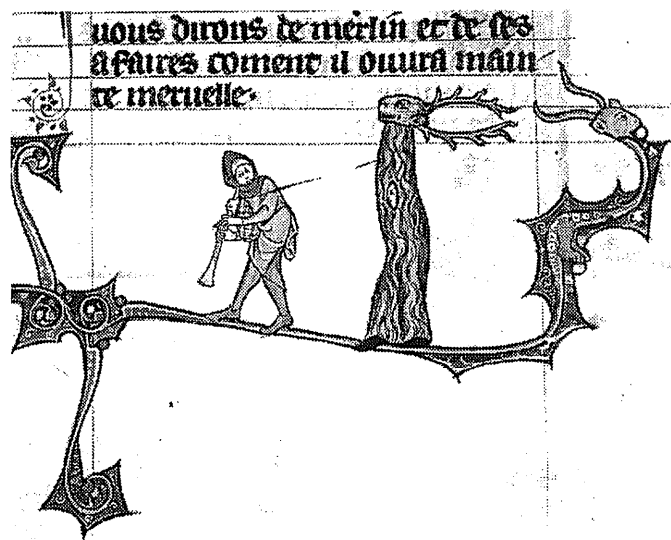 uous dirons de merlin et de ses
afaires coment il ouura main
te meruelle.